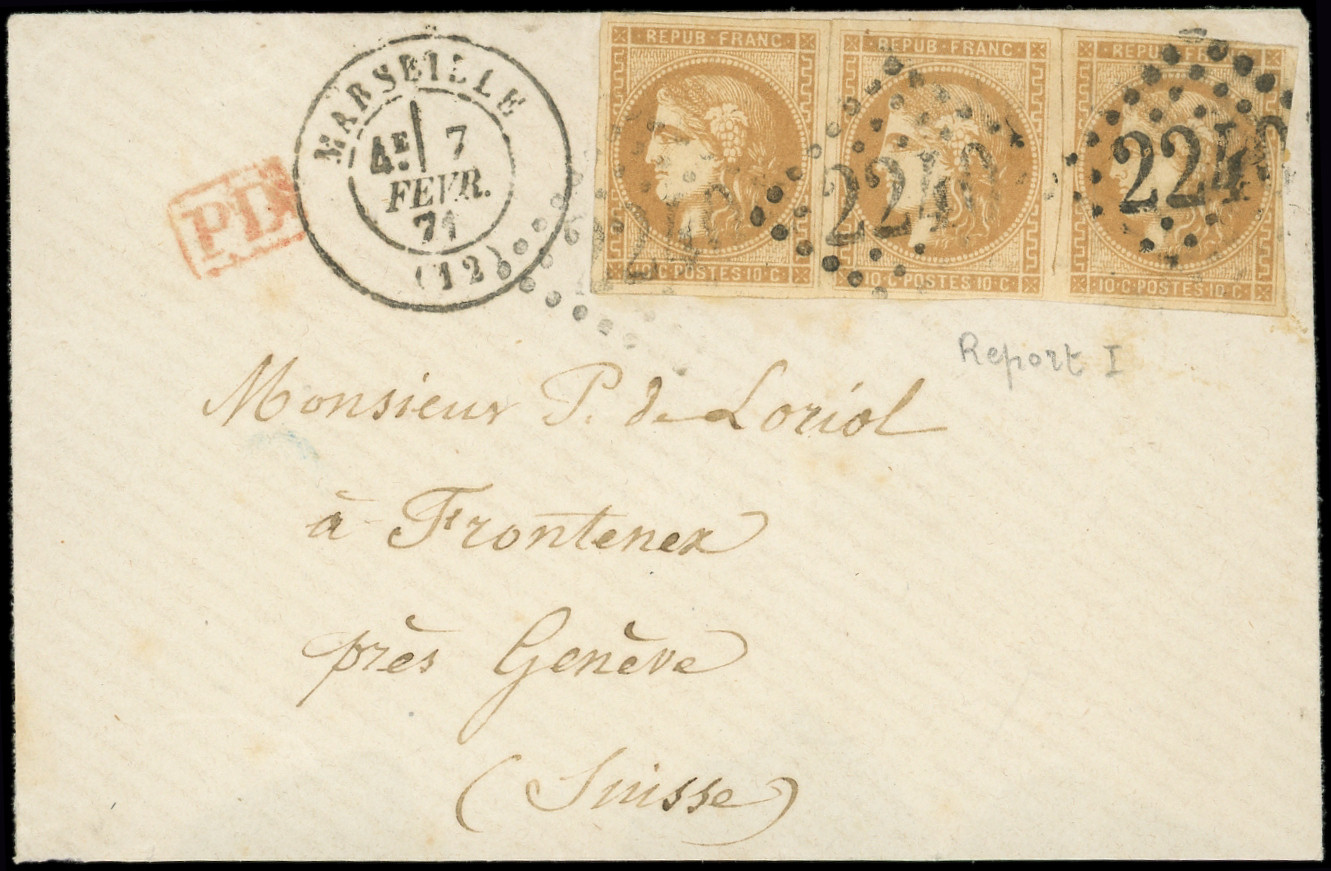 MARSEILLE
4E 7
FEVR.
71
(12)
PD
REPUB·FRANC
10·C·POSTES·10·C
2240
REPUB·FRANC
10·C·POSTES·10·C
2240
REPUB·FRANC
10·C·POSTES·10·C
2240
Report I
Monsieur P. de Loriol
à Frontenex
près Genève
(Suisse)